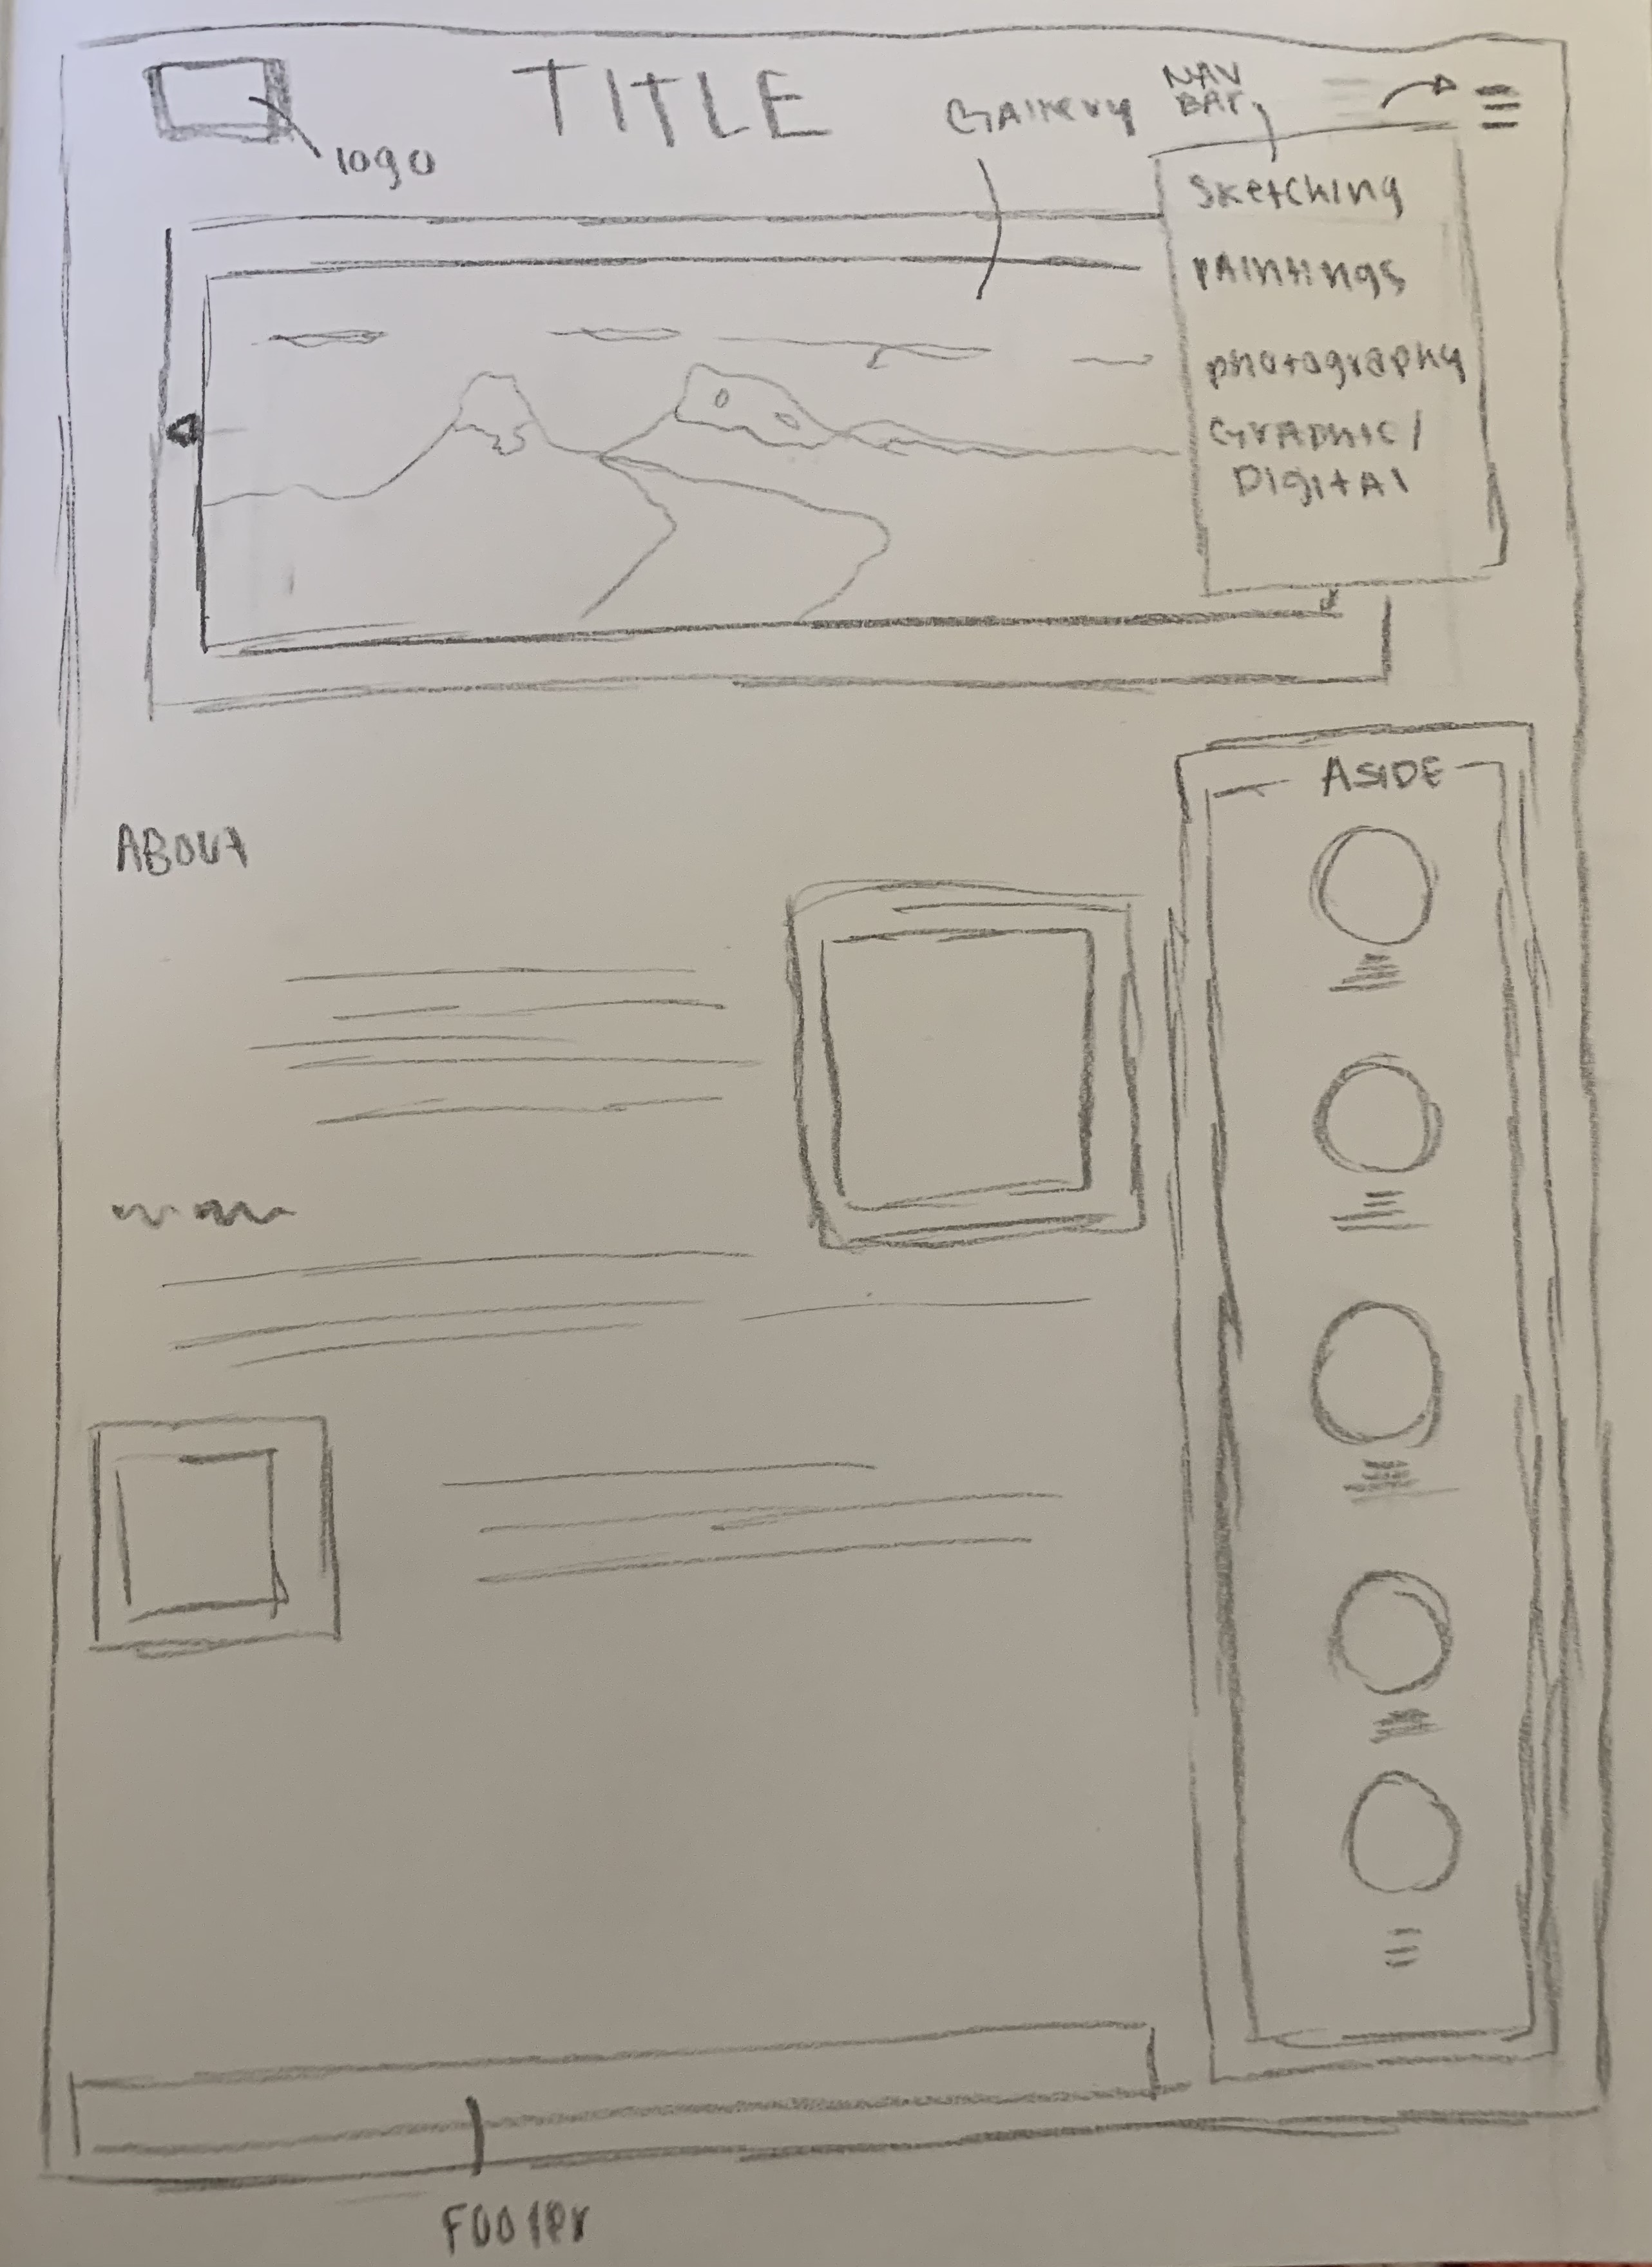 TITLE
logo
Gallery
NAV
BAr
Sketching
PAintings
photography
GrAphic/
DigitAl
ASiDE
ABOUt
FOOter